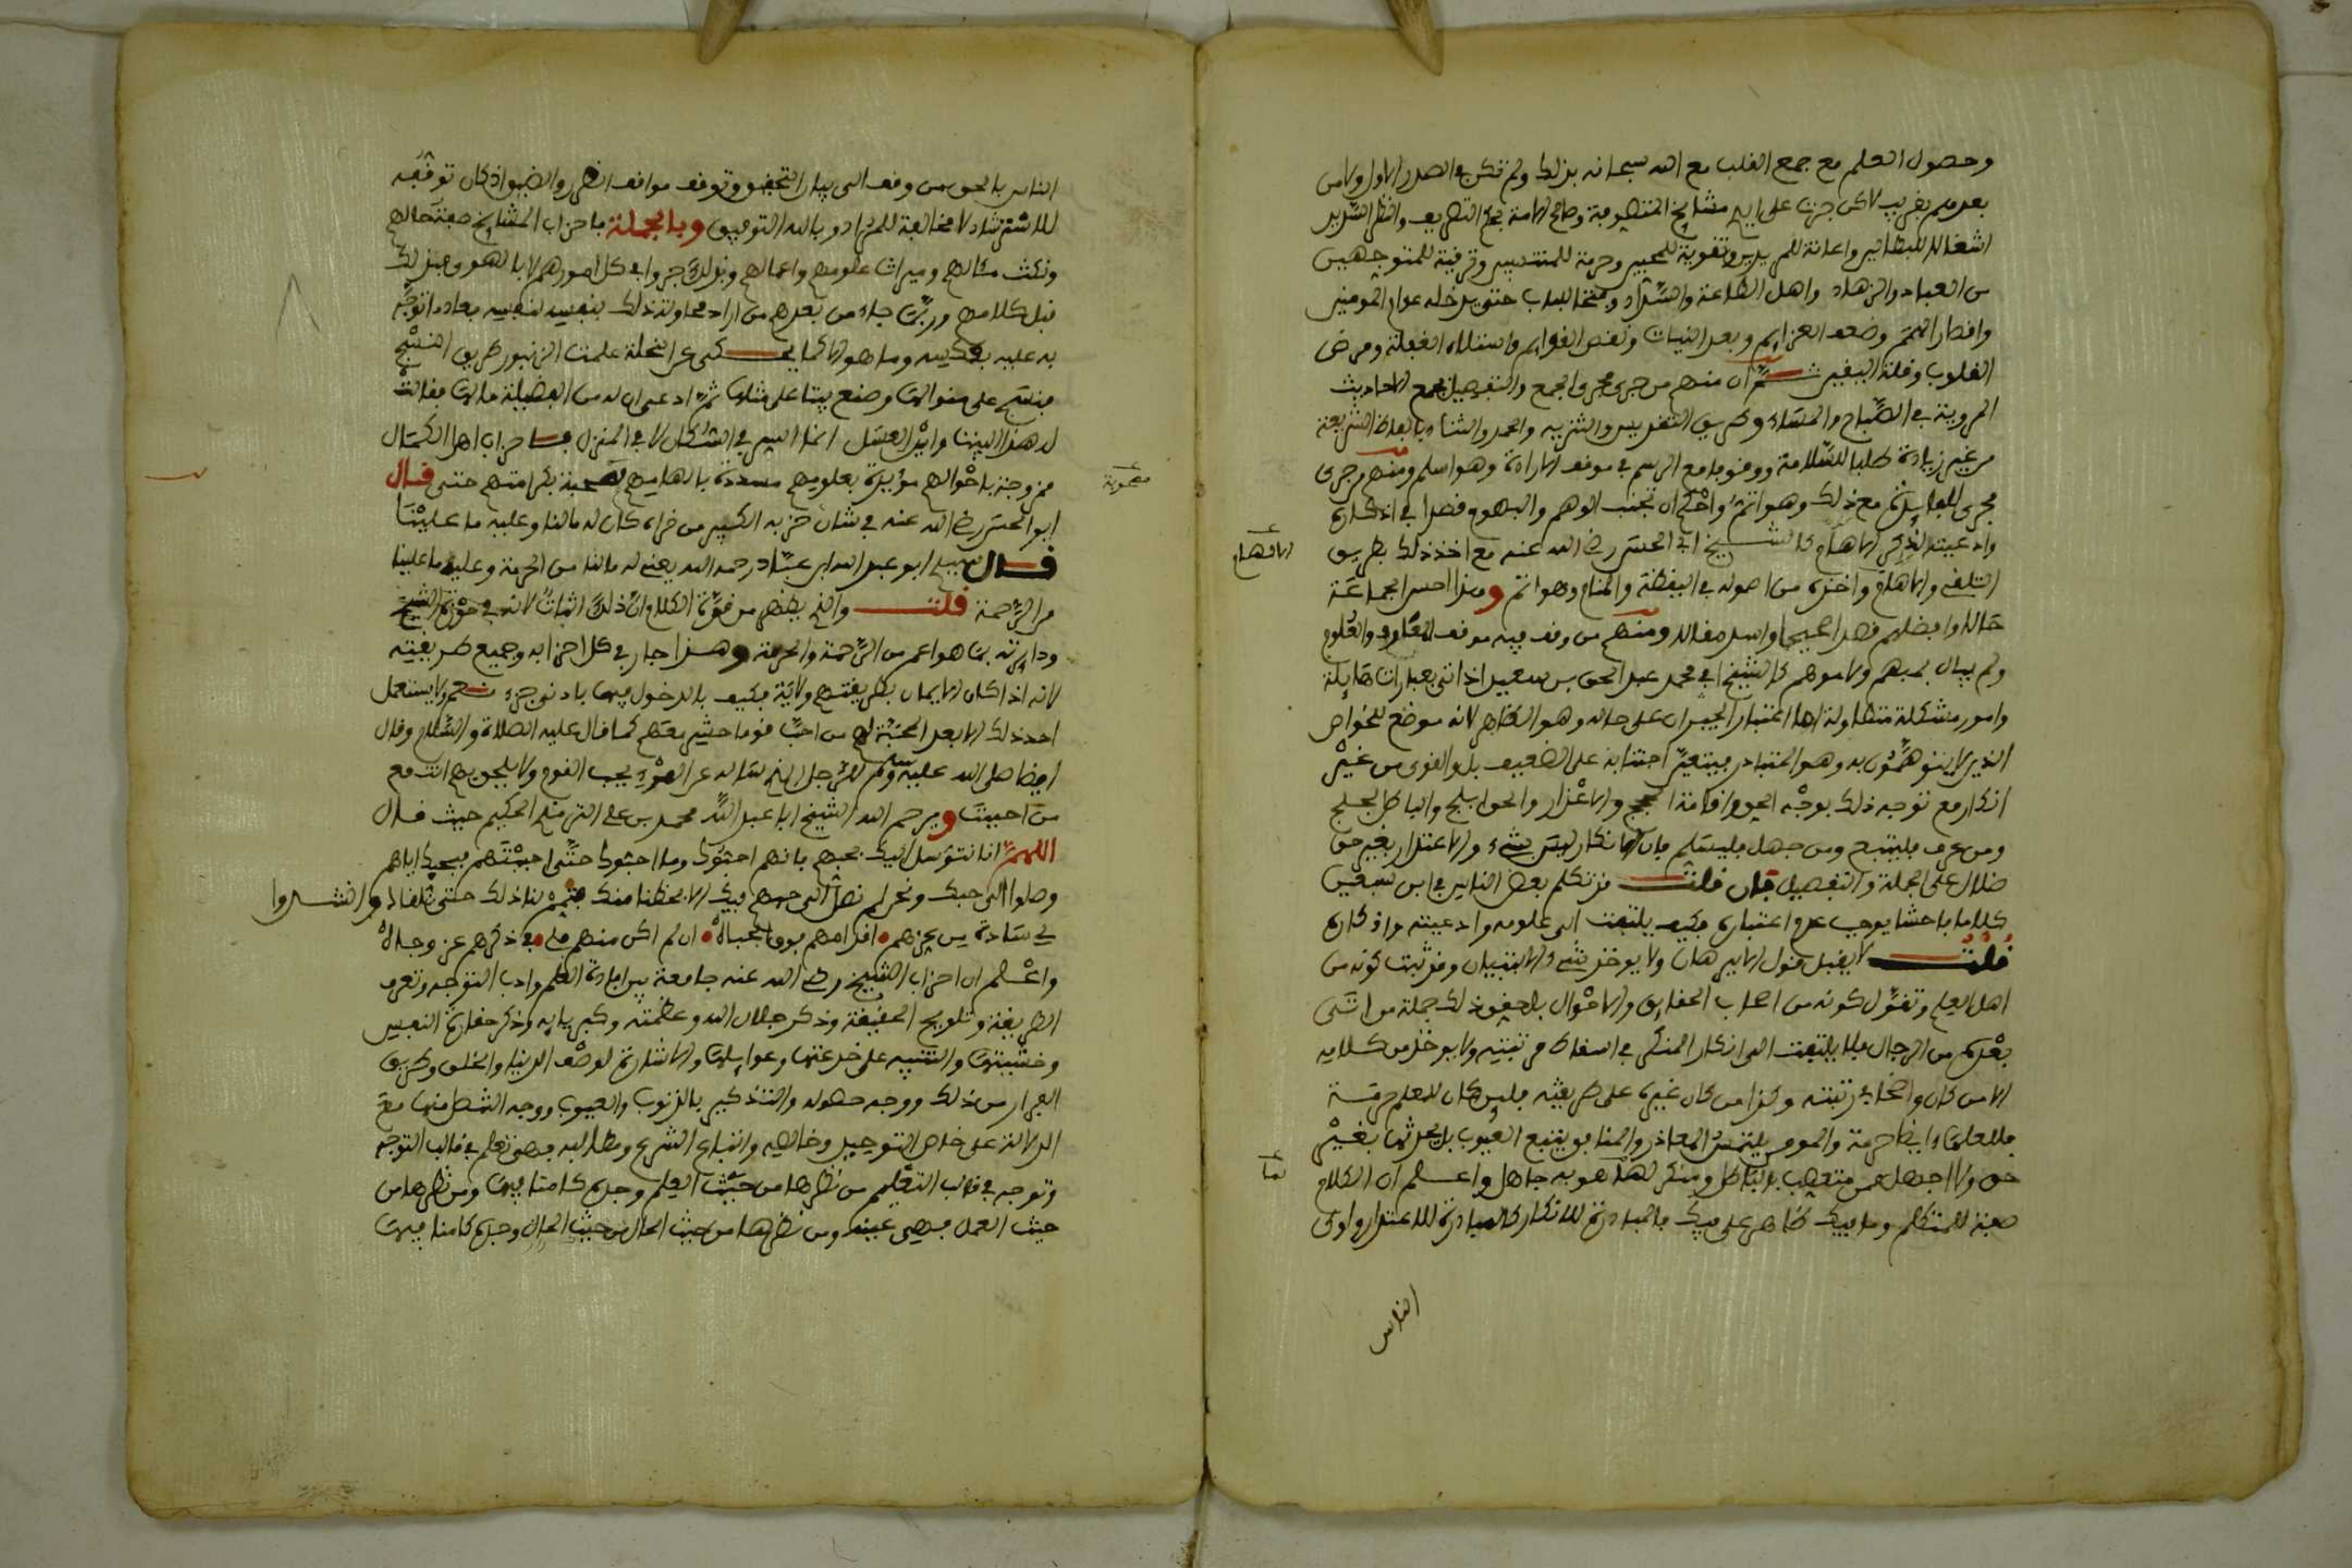 وحصول العلم مع جمع القلب مع الله سبحانه بذلك ولم تكن في الصدر الاول ولا من
بعدهم بقريب لاكن جرت على ايدي مشايخ الصوفية وصالحي الامة بحكم التصريف والنظر السديد
اشغالا للبطالين واعانة للمريدين وتقوية للمحبين وحرمة للمنتسبين وترقية للمتوجهين
من العباد والزهاد واهل الطاعة والسداد وفتحا للباب حتى يدخله عوام المومنين
القلوب وقلة اليقين ثم ان منهم من جرى مجرى الجمع والتفصيل بجمع الاحاديث
المروية في الصباح والمساء وطريق التقديس والتنزيه والحمد والثناء بالفاظ الشريعة
من غير زيادة طلبا للسلامة ووقوفا مع الرسم في موقف الارادة وهو اسلم ومنهم من جرى
مجرى الفايدة مع ذلك وهو اتم واحكم ان تجنب الوهم والبهم قصدا في اذكاره
وادعيته لذكر الاهم كالشيخ ابي الحسن رضي الله عنه مع اخذ ذلك بطريق
التلقي والالهام واخذه من اصوله في اليقظة والمنام وهو اتم وهذا احسن الجماعة
حالا وافضلهم قصدا صحيحا واسد مقالا ومنهم من وقف فيه موقف المعارف والعلوم
ولم يبال بمبهم ولا موهم كالشيخ ابي محمد عبد الحق بن سبعين اذ اتى بعبارات هايلة
وامور مشكلة متطاولة
الذين لا يتوهمون به وهو المتبادر فيتعين اجتنابه على الضعيف بل والقوي من غير
انكار مع توجه ذلك بوجه الحق واقامة الحجج والاعذار والحق ابلج والباطل لجلج
ومن عرف فليتبع ومن جهل فليسلم فان الانكار ليس بشيء والاعتذار بغير حق
ضلال على الجملة والتفصيل فان قلت قد تكلم بعض الناس في ابن سبعين
كلاما فاحشا يوجب عدم اعتباره فكيف يلتفت الى علومه وادعيته واذكاره
قلت لا يقبل قول الا ببرهان ولا يوخذ شيء الا بتبيان وقد ثبت كونه من
اهل العلم وتقول كونه من اصحاب الحقايق والاحوال يحقق ذلك جملة من اتى
بعده من الرجال فلا يلتفت الى انكار المنكر في اسقاط مرتبته ولا يوخذ من كلامه
الا من كان واضحا في رتبته وكذا من كان غيره على طريقته فليس كان للعلم حرمة
فللعلماء ايضا حرمة والمومن يلتمس المعاذر والمنافق يتتبع العيوب بل يحدثها بغير
حق ولا اجهل ممن متعصب بالباطل ومنكر لما هو به جاهل واعلم ان الكلام
صفة للمتكلم وما فيك ظاهر على فيك فالمبادرة للانكار كالمبادرة للاعتذار واولى
الناس
الافهام
لما
الناس بالحق من وقف الى بيان التحقيق وتوقف مواقف النظر والضيق اذ كان توقفه
للاسترشاد لا مخالفة للمراد وبالله التوفيق وبالجملة فاحزاب المشايخ صفة حالهم
ونكت مقالهم وميراث علومهم واعمالهم وبذلك جروا في كل امورهم لا بالهوى فبذلك
قبل كلامهم وربما جاء من بعدهم من اراد محاولة ذلك بنفسه لنفسه فعاد ما توجه
به عليه بعكسه وما هو الا كما يحكى عن النحلة علمت الزنبور طريق النسج
فنسج على منوالها وصنع بيتا على مثالها ثم ادعى ان له من الفضيلة مالها فقالت
له هذا البيت واين العسل انما السر في السكان لا في المنزل فاحزاب اهل الكمال
ممزوجة باحوالهم مؤيدة بعلومهم مسددة بالهامهم مصحوبة بكرامتهم حتى قال
ابو الحسن رضي الله عنه في شان حزبه الكبير من قراه كان له ما لنا وعليه ما علينا
قال سيدي ابو عبد الله ابن عباد رحمه الله يعني له ما لنا من الحرمة وعليه ما علينا
من الرحمة قلت والذي يظهر من قوة الكلام ان ذلك اثبات لانه في حوزة الشيخ
ودايرته بما هو اعم من الرحمة والحرمة وهذا جار في كل احزابه وجميع طريقته
لانه اذا كان الايمان بطريقتهم ولاية فكيف بالدخول فيها بادنى جزء نعم ولا يستعمل
احد ذلك الا بعد المحبة لهم من احب قوما حشر معهم كما قال عليه الصلاة والسلام وقال
ايضا صلى الله عليه وسلم للرجل الذي ساله عن المرء يحب القوم ولا يلحق بهم انت مع
من احببت ويرحم الله الشيخ ابا عبد الله محمد بن علي الترمذي الحكيم حيث قال
اللهم انا نتوسل اليك بحبهم فانهم احبوك وما احبوك حتى احببتهم فبحبك اياهم
وصلوا الى حبك ونحن لم نصل الى حبهم فيك الا بحظنا منك فتمم لنا ذلك حتى نلقاك وانشدوا
لي سادة من عزهم • اقدامهم فوق الجباه • ان لم اكن منهم فلي • في ذكرهم عز وجاه
واعلم ان احزاب الشيخ رضي الله عنه جامعة بين افادة العلم وادب التوجه وتعريف
الطريقة وتلويح الحقيقة وذكر جلال الله وعظمته وكبريايه وذكر حقارة النفس
وخستها والتنبيه على خدعتها وغوايلها والاشارة لوصف الدنيا والخلق وطريق
الفرار من ذلك ووجه حصوله والتذكير بالذنوب والعيوب ووجه التنصل منها مع
الدلالة على خالص التوحيد وخالصه واتباع الشرع ومطالبه فهي تعلم في قالب التوجه
وتوجه في قالب التعليم من نظرها من حيث العلم وجده كامنا فيها ومن نظرها من
حيث العمل فهي عينه ومن نظرها من حيث الحال وجده كامنا فيها
مصحوبة